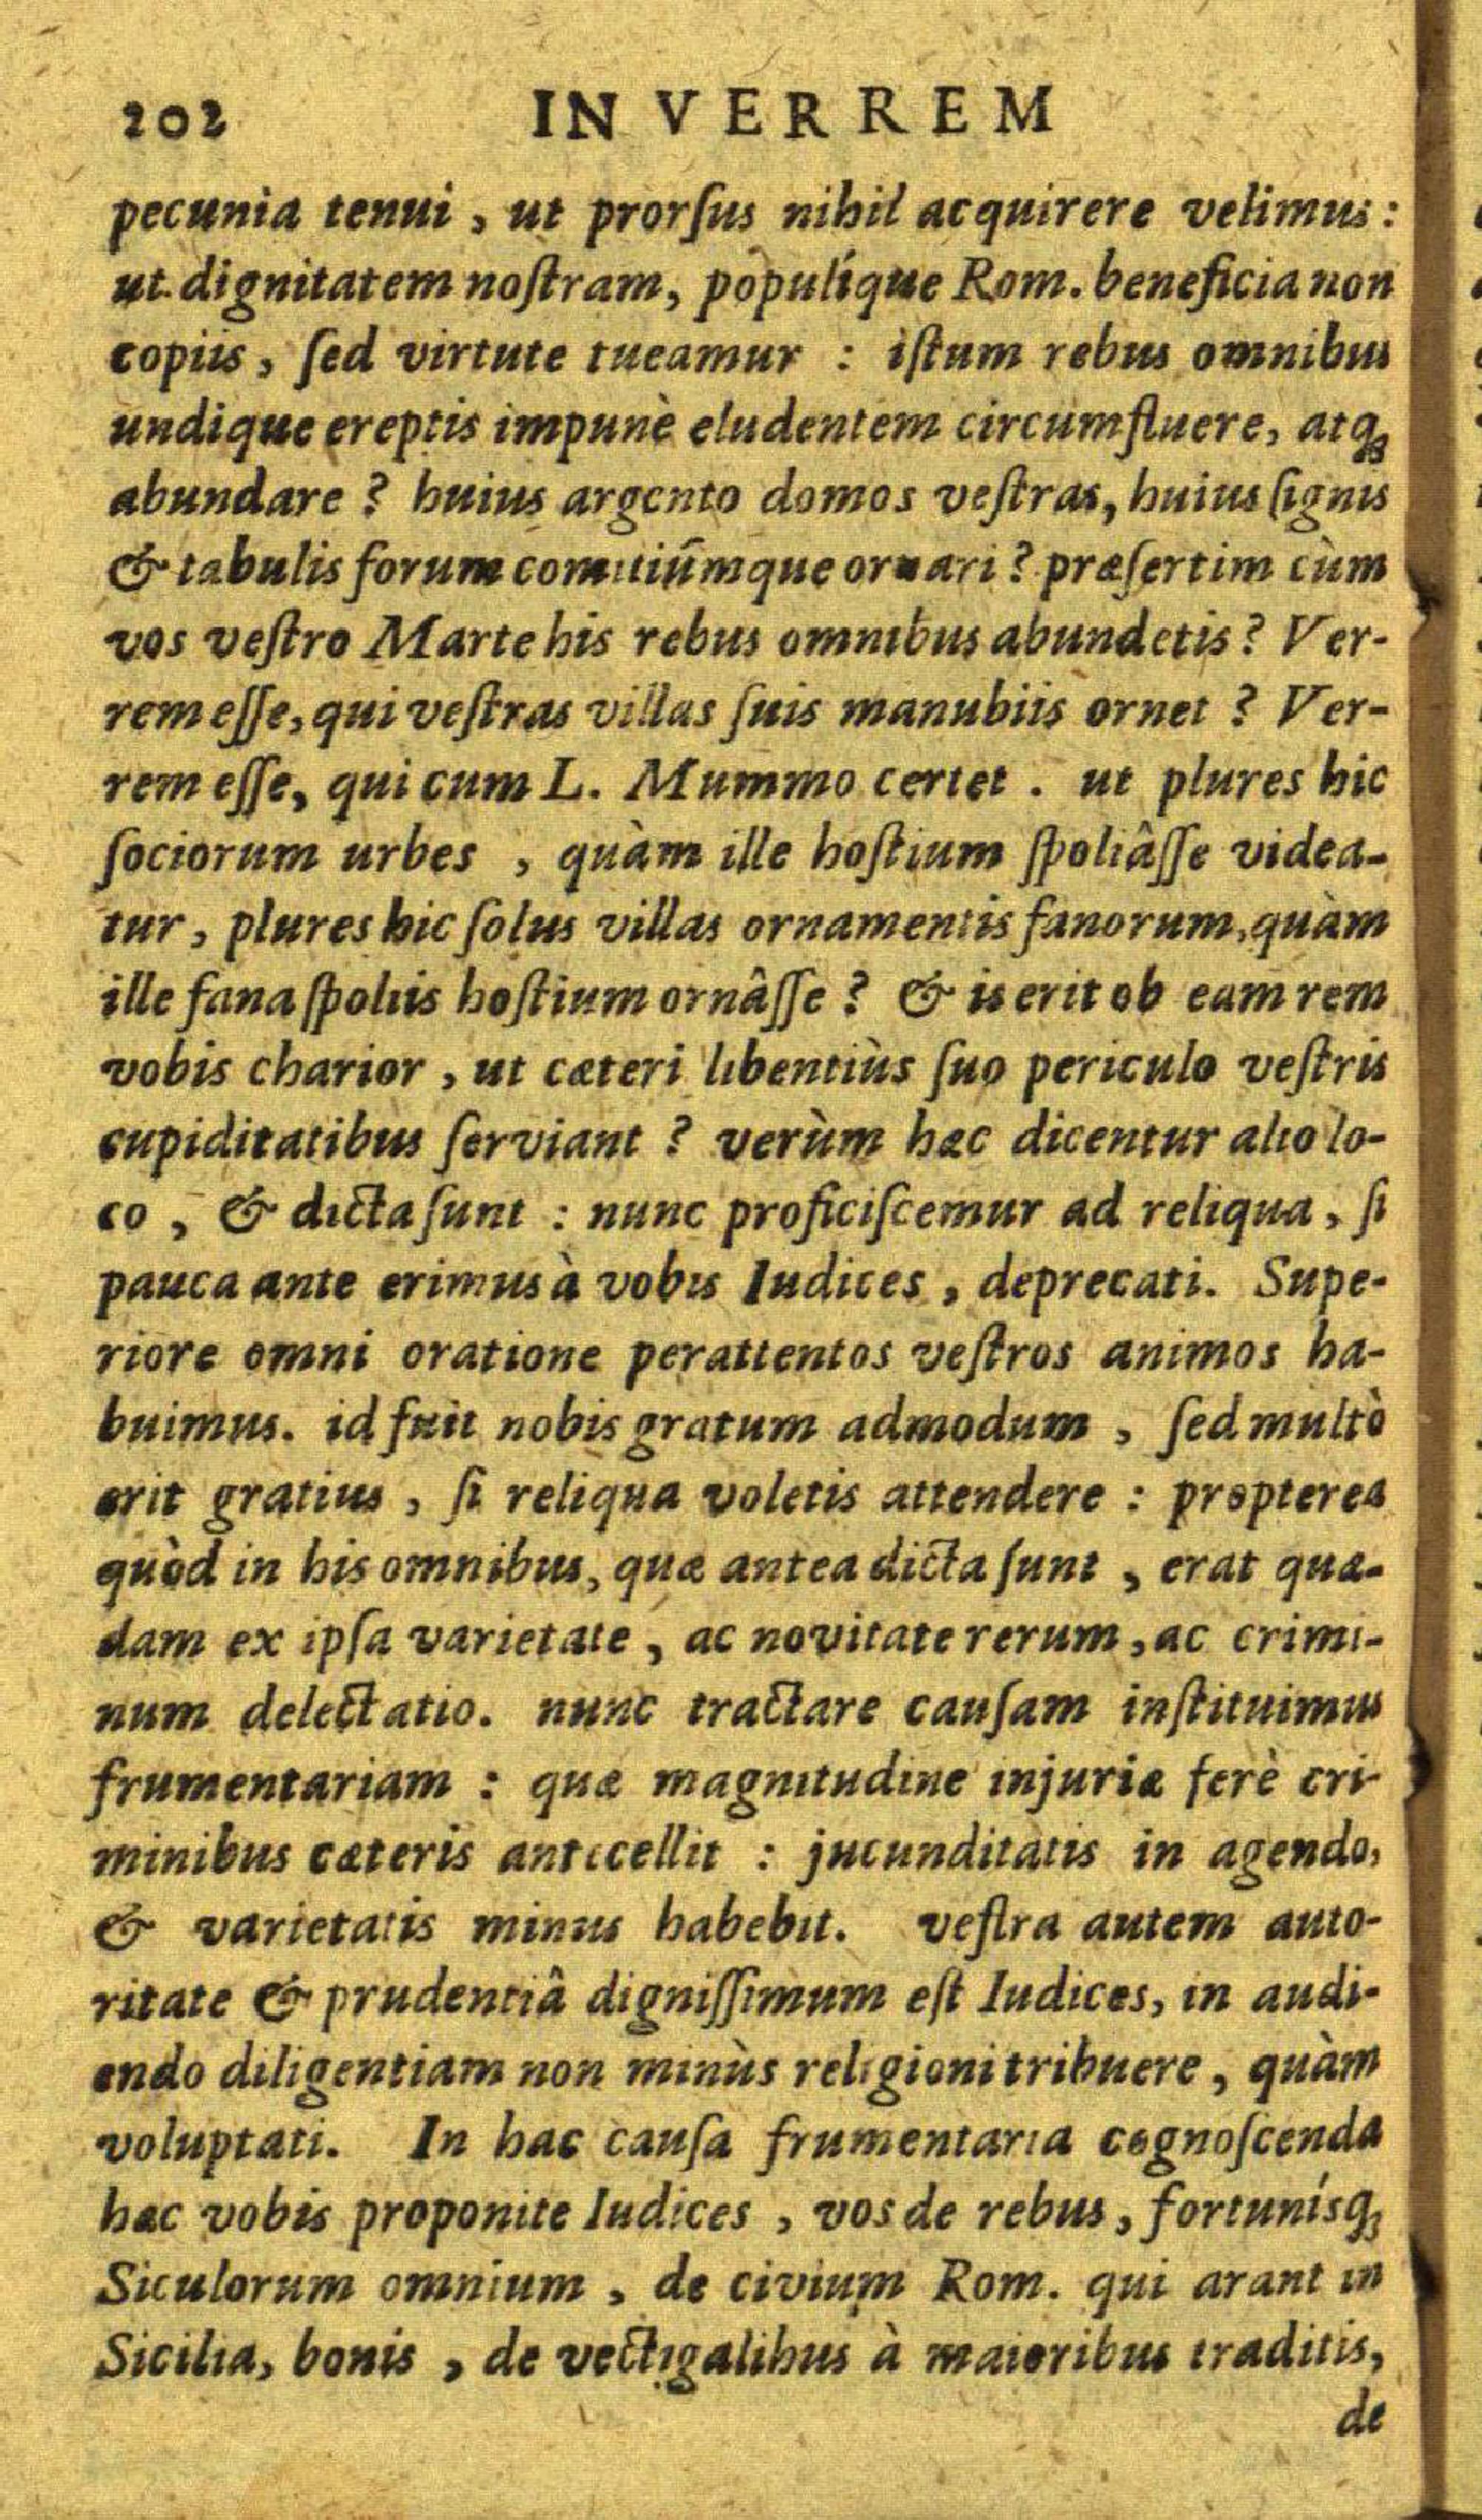 202 IN VERREM
pecunia tenui, ut prorſus nihil acquirere velimus:
ut dignitatem noſtram, populíque Rom. beneficia non
copiis, ſed virtute tueamur : iſtum rebus omnibus
undique ereptis impunè eludentem circumfluere, atq;
abundare ? huius argento domos veſtras, huius ſignis
& tabulis forum comitiúmque ornari ? præſertim cùm
vos veſtro Marte his rebus omnibus abundetis ? Ver-
rem eſſe, qui veſtras villas ſuis manubiis ornet ? Ver-
rem eſſe, qui cum L. Mummo certet . ut plures hic
ſociorum urbes , quàm ille hoſtium ſpoliâſſe videa-
tur, plures hic ſolus villas ornamentis fanorum, quàm
ille fana ſpoliis hoſtium ornâſſe ? & is erit ob eam rem
vobis charior, ut cæteri libentiùs ſuo periculo veſtris
cupiditatibus ſerviant ? verùm hæc dicentur alio lo-
co, & dicta ſunt : nunc proficiſcemur ad reliqua, ſi
pauca ante erimus à vobis Iudices, deprecati. Supe-
riore omni oratione perattentos veſtros animos ha-
buimus. id fuit nobis gratum admodum , ſed multò
erit gratius, ſi reliqua voletis attendere : propterea
quòd in his omnibus, quæ antea dicta ſunt, erat quæ-
dam ex ipſa varietate, ac novitate rerum, ac crimi-
num delectatio. nunc tractare cauſam inſtituimus
frumentariam : quæ magnitudine injuriæ ferè cri-
minibus cæteris antecellit : jucunditatis in agendo,
& varietatis minus habebit. veſtra autem auto-
ritate & prudentiâ digniſſimum eſt Iudices, in audi-
endo diligentiam non minùs religioni tribuere, quàm
voluptati. In hac cauſa frumentaria cognoſcenda
hæc vobis proponite Iudices, vos de rebus, fortunísq;
Siculorum omnium, de civium Rom. qui arant in
Sicilia, bonis, de vectigalibus à maioribus traditis,
de